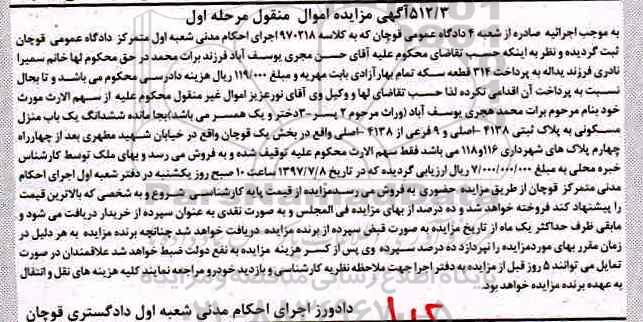 ۵۱۲/۳آگهی مزایده اموال منقول مرحله اول
به موجب اجرائیه صادره از شعبه ۴ دادگاه عمومی قوچان که به کلاسه ۹۷۰۲۱۸ اجرای احکام مدنی شعبه اول متمرکز دادگاه عمومی قوچان
ثبت گردیده و نظر به اینکه حسب تقاضای محکوم علیه آقای حسن مجری یوسف آباد فرزند برات محمد در حق محکوم لها خانم سمیرا
نادری فرزند یداله به پرداخت ۳۱۴ قطعه سکه تمام بهارآزادی بابت مهریه و مبلغ ۱۱۹/۰۰۰ ریال هزینه دادرسی محکوم می باشد و تا بحال
نسبت به پرداخت آن اقدامی نکرده لذا حسب تقاضای لها و وکیل وی آقای نورعزیز اموال غیر منقول محکوم علیه از سهم الارث موروث
خود بنام مرحوم برات محمد هجری یوسف آباد (وراث مرحوم ۲ پسر-۳دختر و یک همسر می باشد)بجا مانده ششدانگ یک باب منزل
مسکونی به پلاک ثبتی ۴۱۳۸ -اصلی و ۹ فرعی از ۴۱۳۸ -اصلی واقع در بخش یک قوچان واقع در خیابان شهید مطهری بعد از چهارراه
چهارم پلاک های شهرداری ۱۱۶و۱۱۸ می باشد فقط سهم الارث محکوم علیه توقیف شده و به فروش می رسد و بهای ملک توسط کارشناس
خبره محلی به مبلغ ۷/۰۰۰/۰۰۰/۰۰۰ ریال ارزیابی گردیده که در تاریخ ۱۳۹۷/۷/۸ ساعت ۱۰ صبح روز یکشنبه در دفتر شعبه اول اجرای احکام
مدنی متمرکز قوچان از طریق مزایده حضوری به فروش می رسد.مزایده از قیمت پایه کارشناسی شروع و به شخصی که بالاترین قیمت
را پیشنهاد کند فروخته خواهد شد و ده درصد از بهای مزایده فی المجلس و به صورت نقدی به عنوان سپرده از خریدار دریافت می شود و
مابقی ظرف حداکثر یک ماه از تاریخ مزایده به صورت قبض سپرده از برنده مزایده دریافت خواهد شد چنانچه برنده مزایده به هر دلیل در
زمان مقرر بهای موردمزایده را نپردازد ده درصد سپرده وی پس از کسر هزینه مزایده به نفع دولت ضبط خواهد شد علاقمندان در صورت
تمایل می توانند ۵ روز قبل از مزایده به دفتر اجرا جهت ملاحظه نظریه کارشناسی و بازدید خودرو مراجعه نمایند کلیه هزینه های نقل و انتقال
به عهده برنده مزایده خواهد بود.
دادورز اجرای احکام مدنی شعبه اول دادگستری قوچان